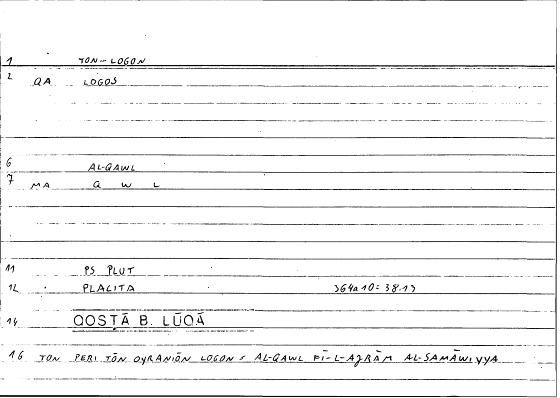 1 TON-LOGON
2 QA LOGOS
6 AL-QAWL
7 MA Q W L
11 PS PLUT
12 PLACITA 364a10=38.13
14 QOSṬĀ B. LŪQĀ
16 TŌN PERI TŌN OYRANIŌN LOGON = AL-QAWL FĪ-L-AǦRĀM AL-SAMĀWIYYA